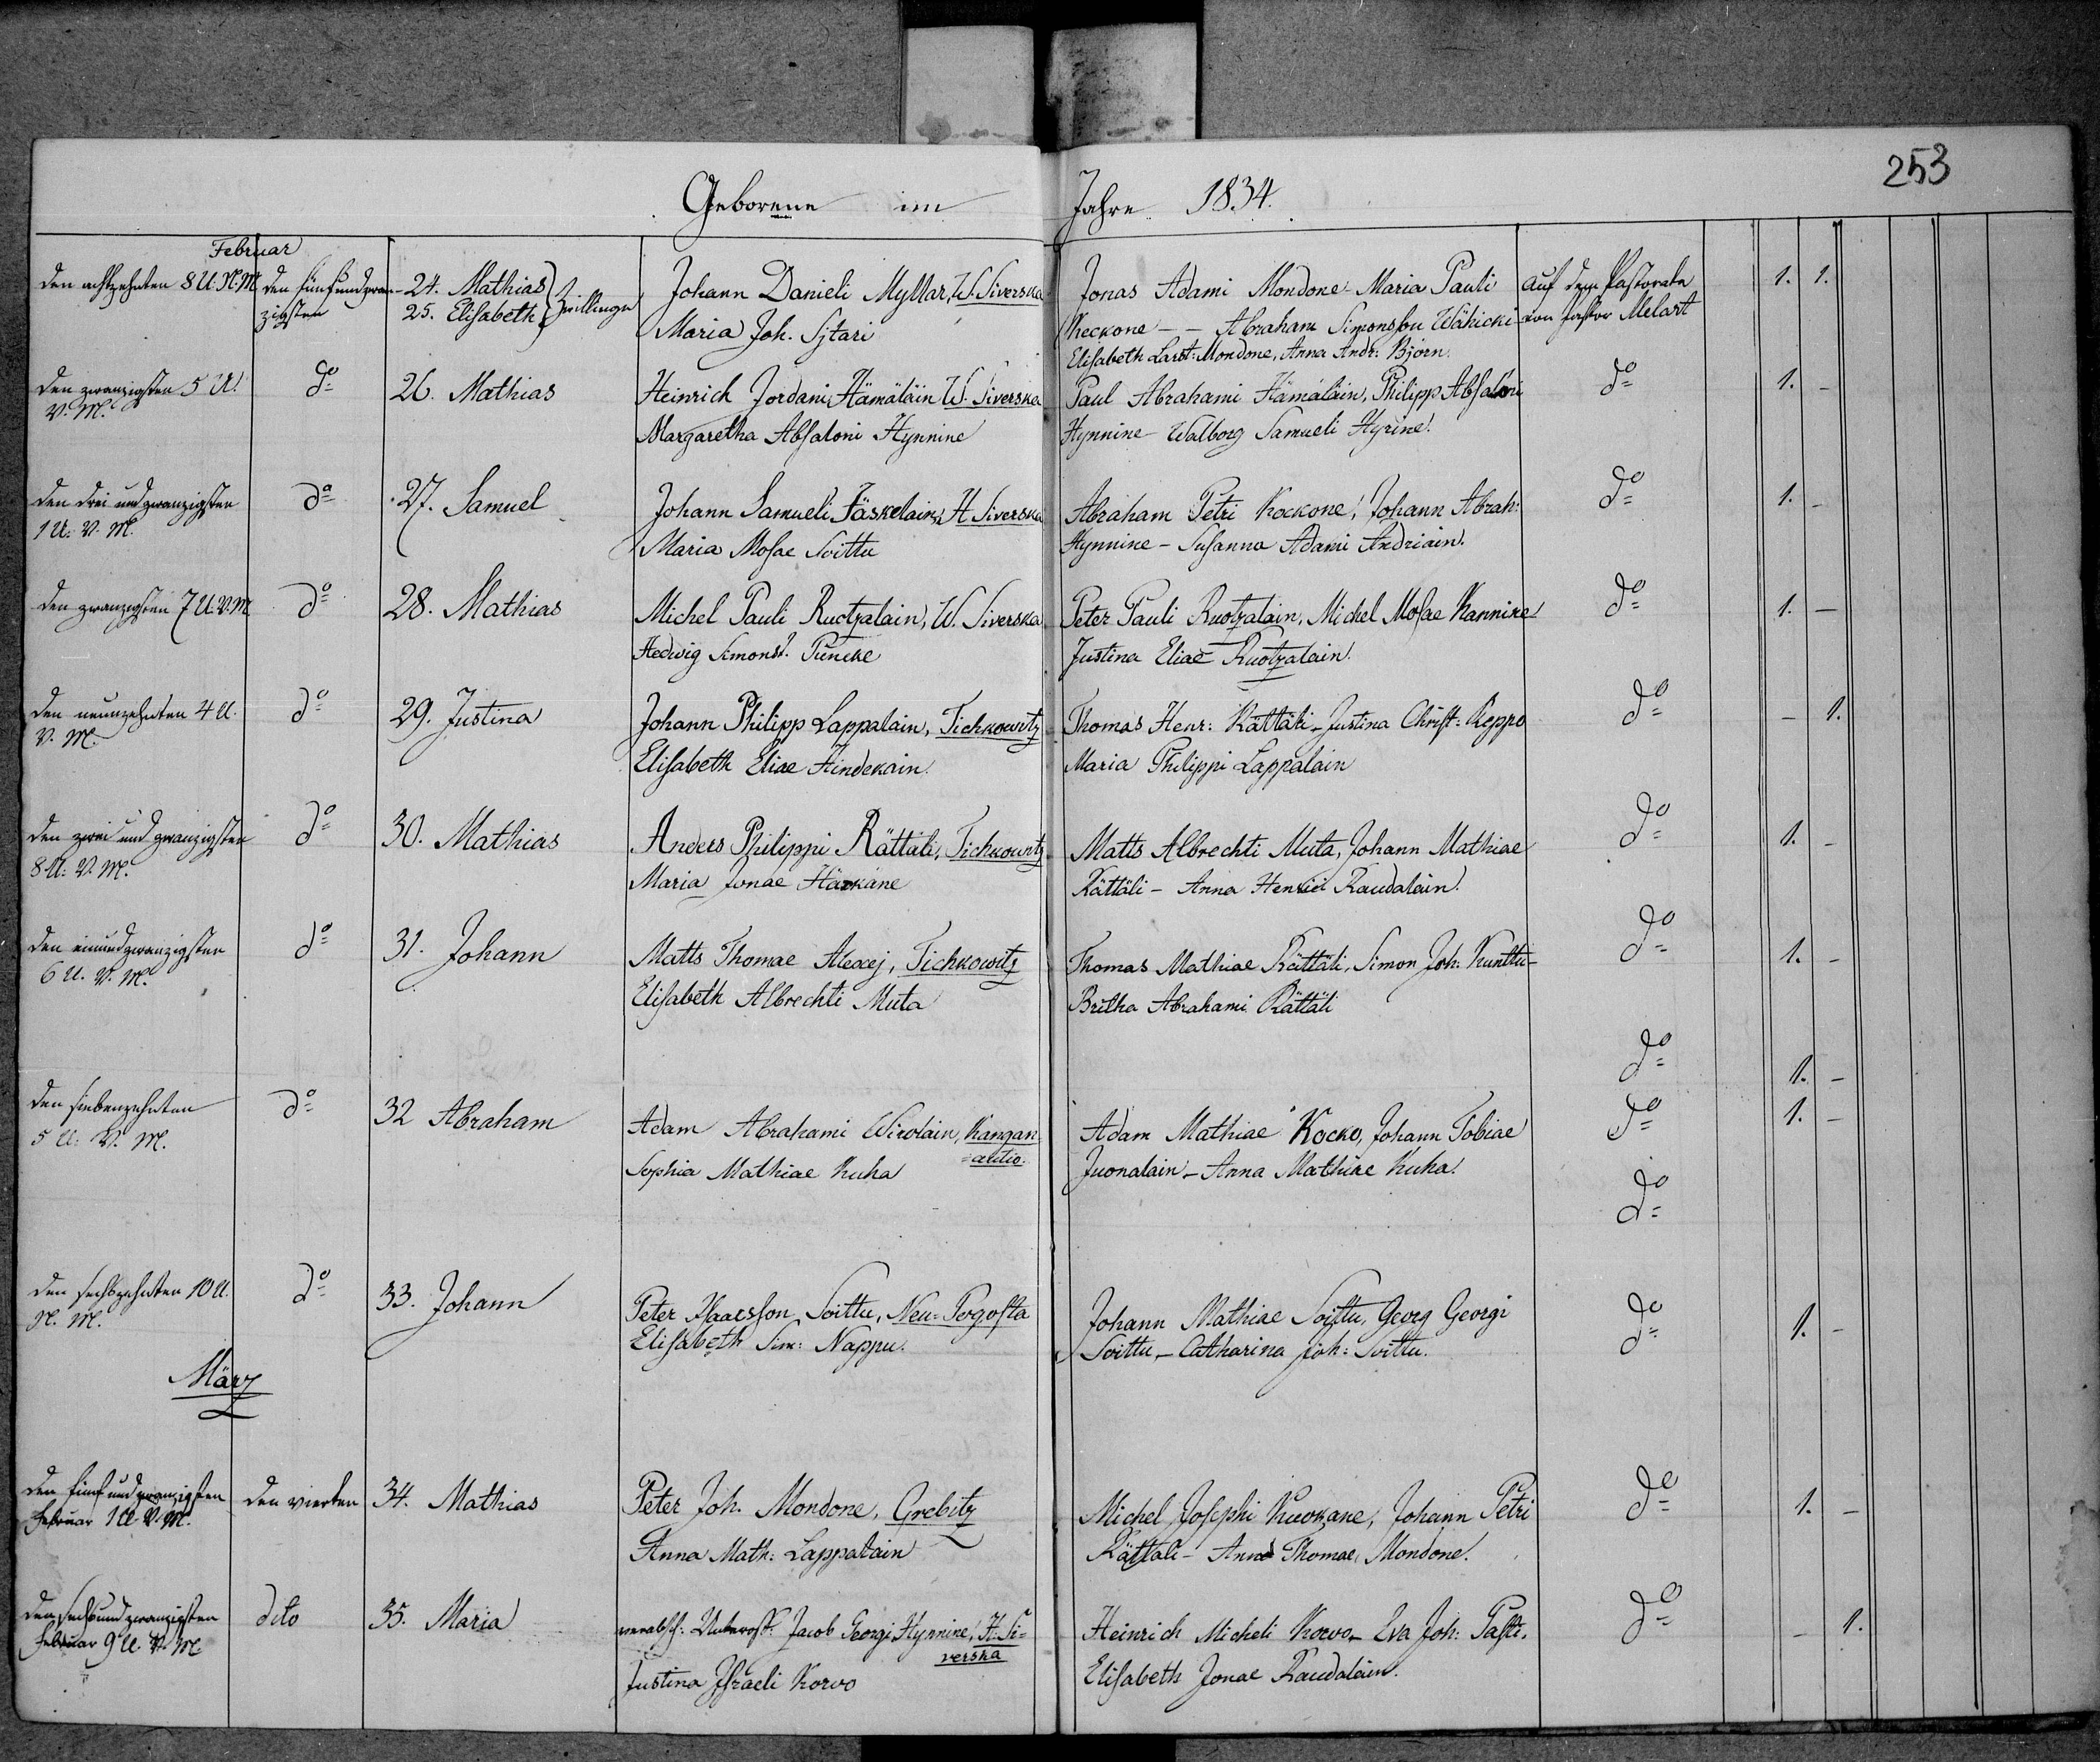 253
Geborene im Jahre 1834.
Februar
den achtzehnten 8 U. N. M. den fünfundzwan- 24. Mathias Zwillinge Johann Danieli Myllar, W. Siverska Jonas Adami Mondone Maria Pauli auf dem Pastorate 1. 1.
zigsten 25. Elisabeth Maria Joh. Sjtari Keckone - - Abraham Simonsson Wähicki von Pastor Melart
Elisabeth Larst: Mondone, Anna Andr: Björn.
den zwanzigsten 5 U. do 26. Mathias Heinrich Jordani Hämäläin W. Siverska Paul Abrahami Hämäläin, Philipp Absaloni do 1. -
V. M. Margaretha Absaloni Hynnine Hynnine - Walborg Samueli Hyrine.
den drei und zwanzigsten do 27. Samuel Johann Samueli Jäskelain, H. Siverska Abraham Petri Kockone, Johann Abrah: do 1. -
1 U. V. M. Maria Mosae Soittu Hynnine - Susanna Adami Andriain.
den zwanzigsten 7 U. V. M. do 28. Mathias Michel Pauli Ruotzalain, W. Siverska Peter Pauli Ruotzalain, Michel Mosae Kannine do 1. -
Hedwig Simonst. Püncke Justina Eliae Ruotzalain.
den neunzehnten 4 U. do 29. Justina Johann Philipp Lappalain, Tichkowitz Thomas Henr: Rättäli - Justina Christ: Reppo do - 1.
V. M. Elisabeth Eliae Hindekain. Maria Philippi Lappalain
den zwei und zwanzigsten do 30. Mathias Anders Philippi Rättäli, Tichkowitz Matts Albrechti Muta, Johann Mathiae do 1. -
8 U: V. M. Maria Jonae Härkäne Rättäli - Anna Henrici Raudalain.
den einundzwanzigsten do 31. Johann Matts Thomae Alexej, Tichkowitz Thomas Mathiae Rättäli, Simon Joh: Kunttu - do 1. -
6 U. V. M. Elisabeth Albrechti Muta Britha Abrahami Rättäli
do 1. -
den siebenzehnten do 32 Abraham Adam Abrahami Wirolain, Kangan Adam Mathiae Kocko, Johann Tobiae do 1. -
5 U. V. M. Sophia Mathiae Kuha =autio. Juonalain - Anna Mathiae Kuha.
do
den sechszehnten 10 U. do 33. Johann Peter Isaacsson Soittu, Neu-Pogosta Johann Mathiae Soittu, Georg Georgi do 1. -
N. M. Elisabeth Sim: Nappu. Soittu - Catharina Joh: Soittu.
März
den fünf und zwanzigsten den vierten 34. Mathias Peter Joh. Mondone, Grebitz Michel Josephi Kuokane, Johann Petri do 1. -
Februar 1 U. V. M. Anna Math: Lappalain Rättäli - Anna Thomae Mondone.
den sechsundzwanzigsten dito 35. Maria verabsch: Unteroff: Jacob Georgi Hynnine, H. Si= Heinrich Micheli Korvo - Eva Joh: Paste, do - 1.
Februar 9 U. V. M. verska
Justina Israeli Korvo Elisabeth Jonae Raudalain.